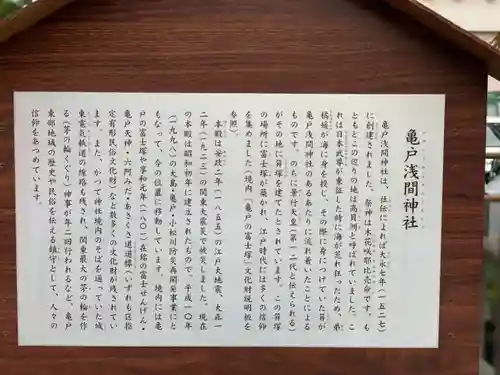 亀戸浅間神社
亀戸浅間神社は、社伝によれば大永七年（一五二七）
に創建されました。祭神は木花咲耶比売命です。も
ともとこの辺りの地は高貝洲と呼ばれていました。こ
れは日本武尊が東征した時に海が荒れ狂ったため、弟
橘媛が海に身を投じ、その際に身につけていた笄が
亀戸浅間神社のあるあたりに流れ着いたことによる
ものです。のちに景行天皇（第一二代と伝えられる）
がその地に笄塚を建てたとされています。この笄塚
の場所に富士塚が築かれ、江戸時代には多くの信仰
を集めました（境内「亀戸の富士塚」文化財説明板を
参照）。
本殿は安政二年（一八五五）の江戸大地震、大正一
二年（一九二三）の関東大震災で被災しました。現在
の本殿は昭和初年に建立されたもので、平成一〇年
（一九九八）の大島・亀戸・小松川防災再開発事業にと
もなって、今の位置に移動しています。境内には亀
戸の富士塚や享和元年（一八〇一）在銘の富士せんげん・
亀戸天神・六阿ミだ・あさくさ道道標（いずれも区指
定有形民俗文化財）など数多くの文化財が残されてい
ます。また、かつて神社境内のそばを通っていた城
東電気軌道の線路も残され、関東最大の茅の輪を作
る（茅の輪くぐり）神事が年二回行われるなど、亀戸
東部地域の歴史や民俗を伝える鎮守として、人々の
信仰をあつめています。